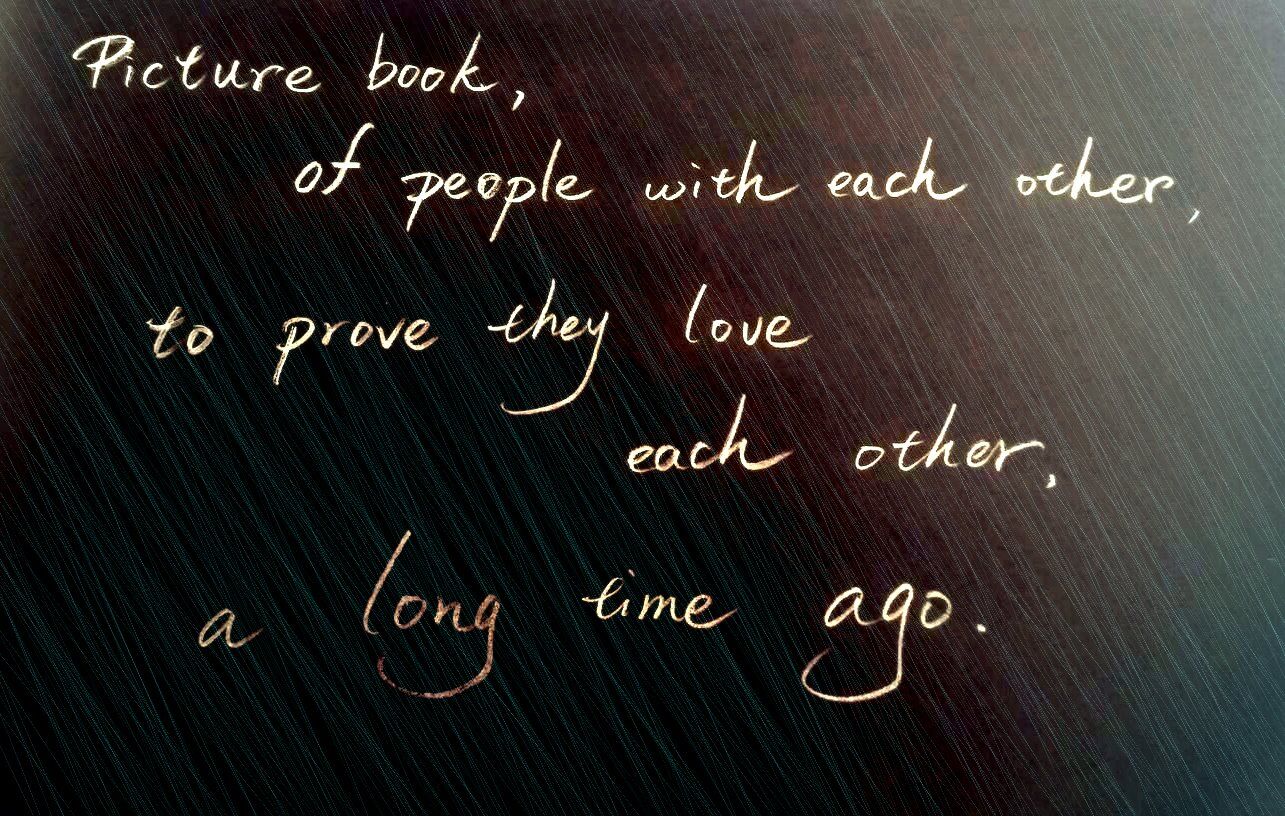 Picture book,
of people with each other,
to prove they love
each other,
a long time ago.